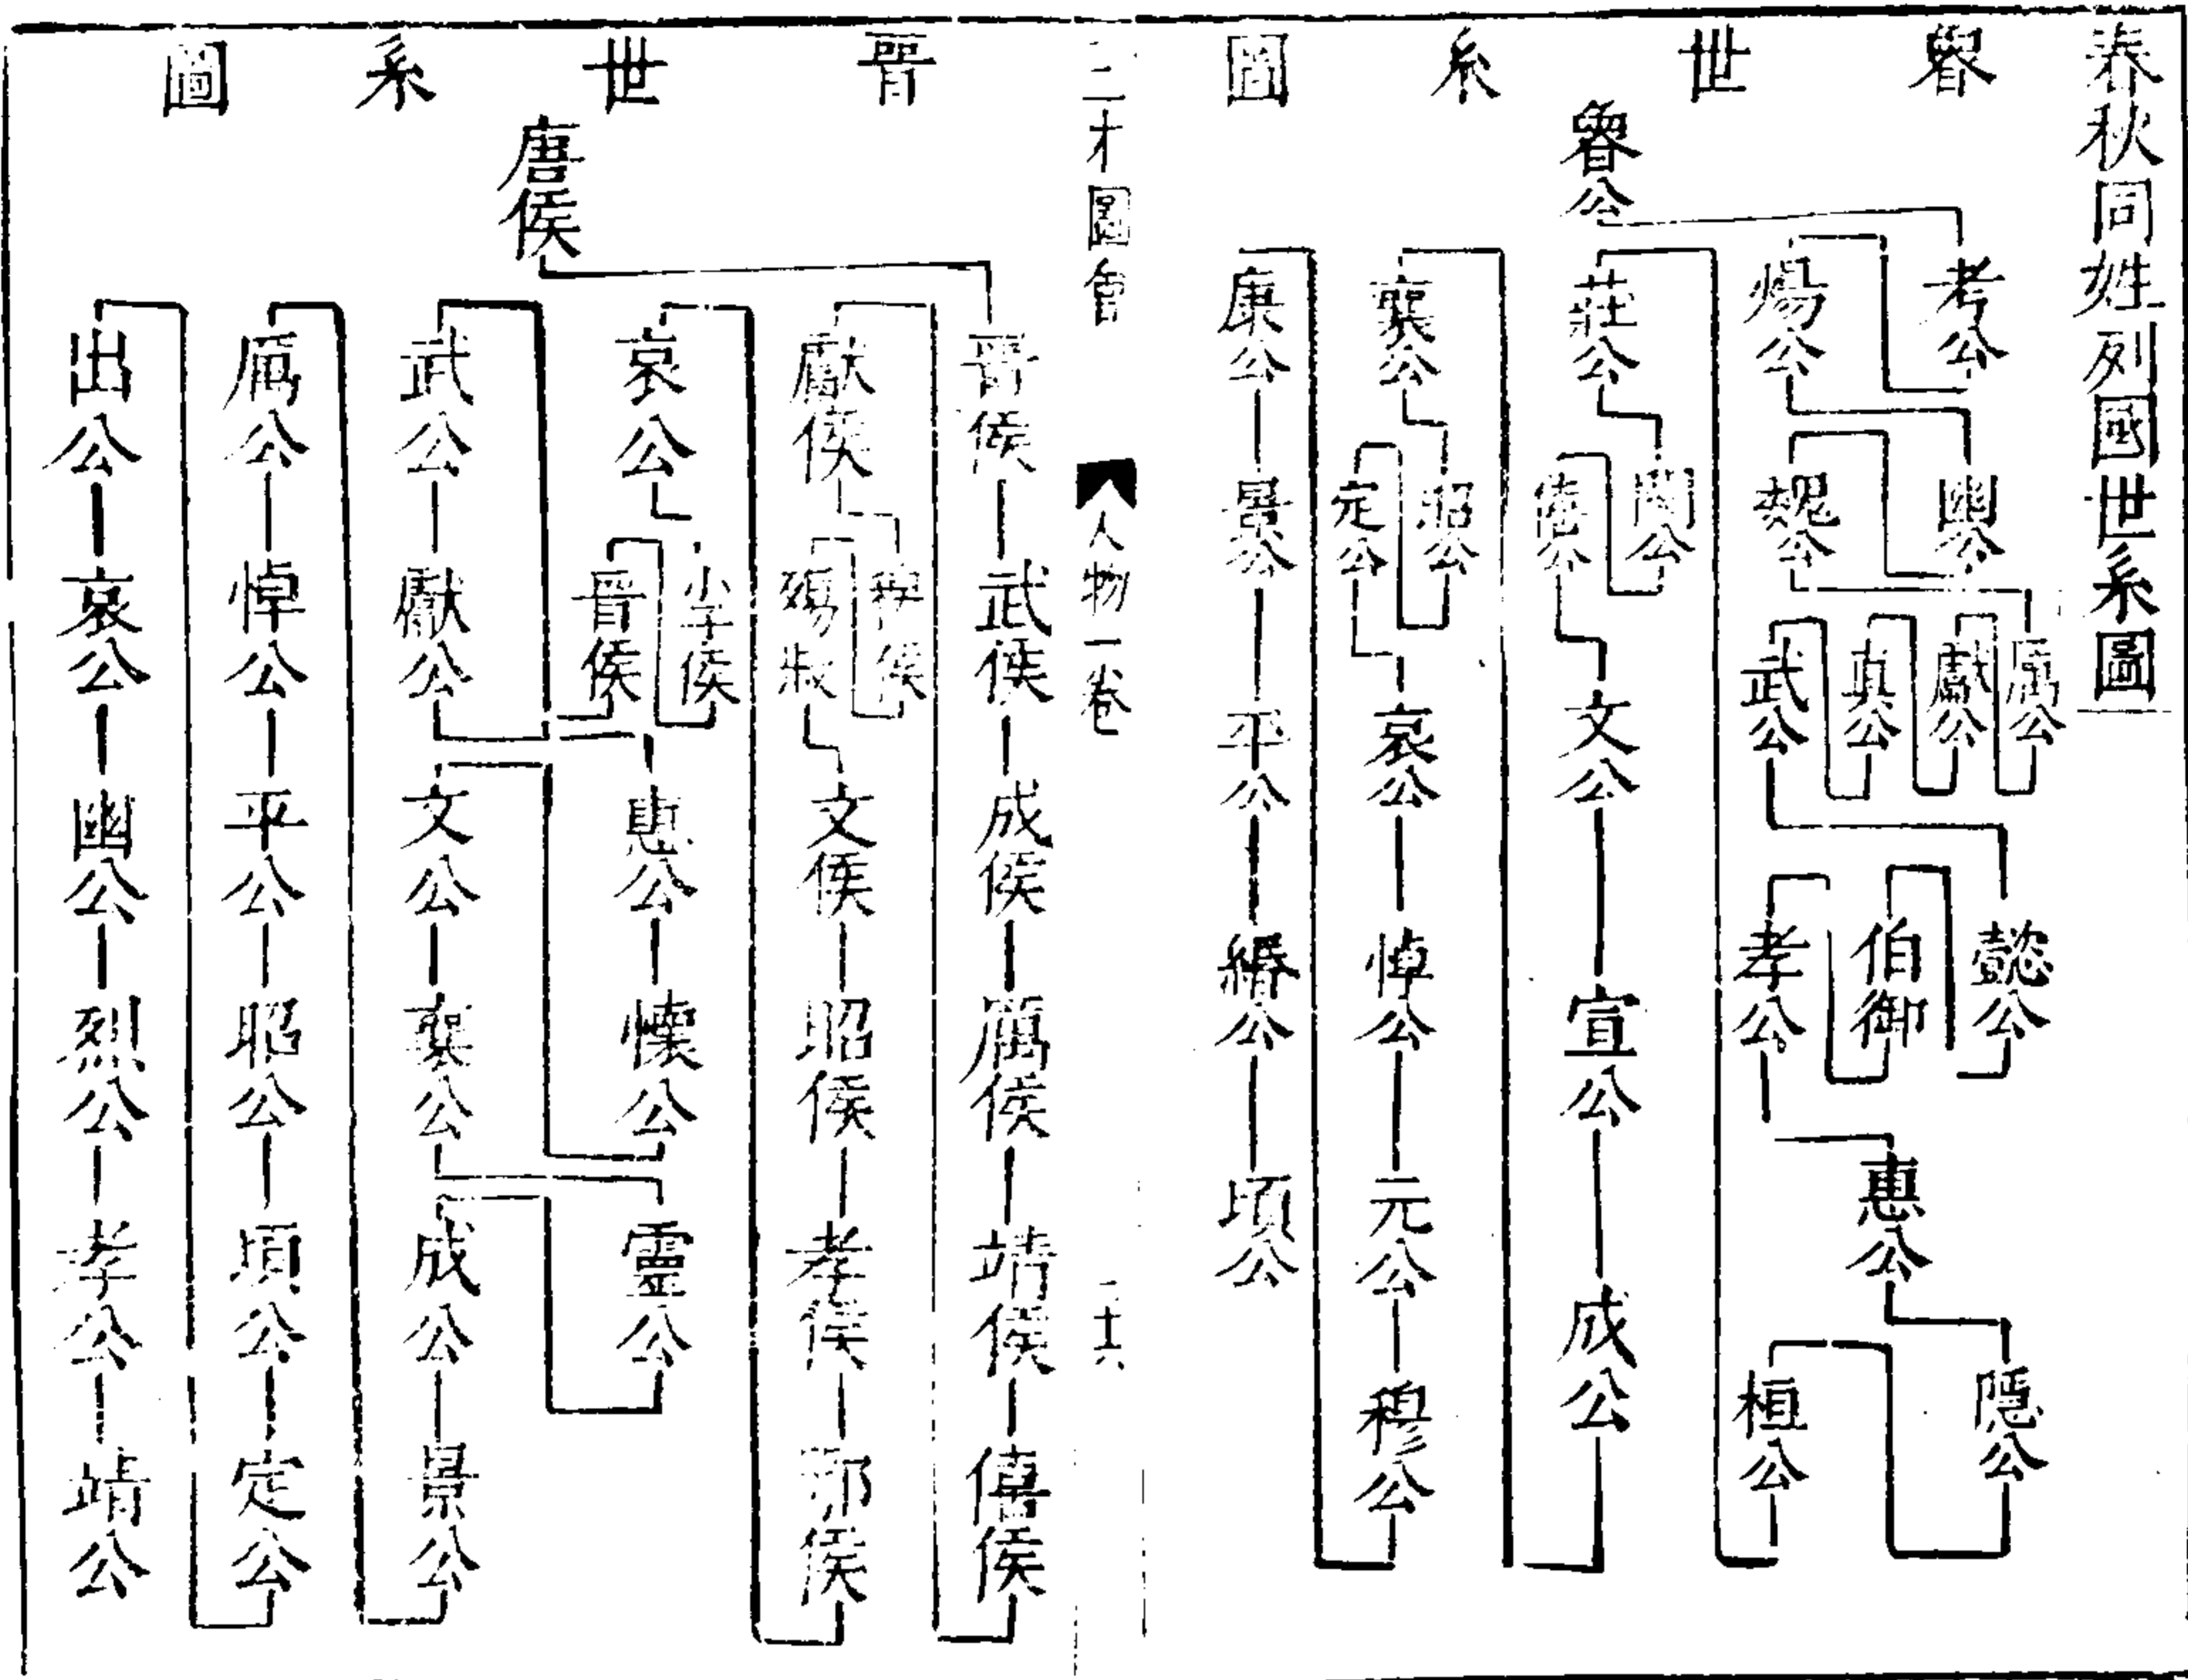 春秋同姓列國世系圖
魯世系圖
魯公
考公
煬公
幽公
魏公
厲公
獻公
真公
武公
懿公
伯御
孝公
惠公
隱公
桓公
莊公
閔公
僖公
文公
宣公
成公
襄公
昭公
定公
哀公
悼公
元公
穆公
康公
景公
平公
緡公
頃公
三才圖會
人物一卷
二十六
晉世系圖
唐侯
晉侯
武侯
成侯
厲侯
靖侯
僖侯
獻侯
穆侯
殤叔
文侯
昭侯
孝侯
鄂侯
哀公
小子侯
晉侯
惠公
懷公
靈公
武公
獻公
文公
襄公
成公
景公
厲公
悼公
平公
昭公
頃公
定公
出公
哀公
幽公
烈公
孝公
靖公